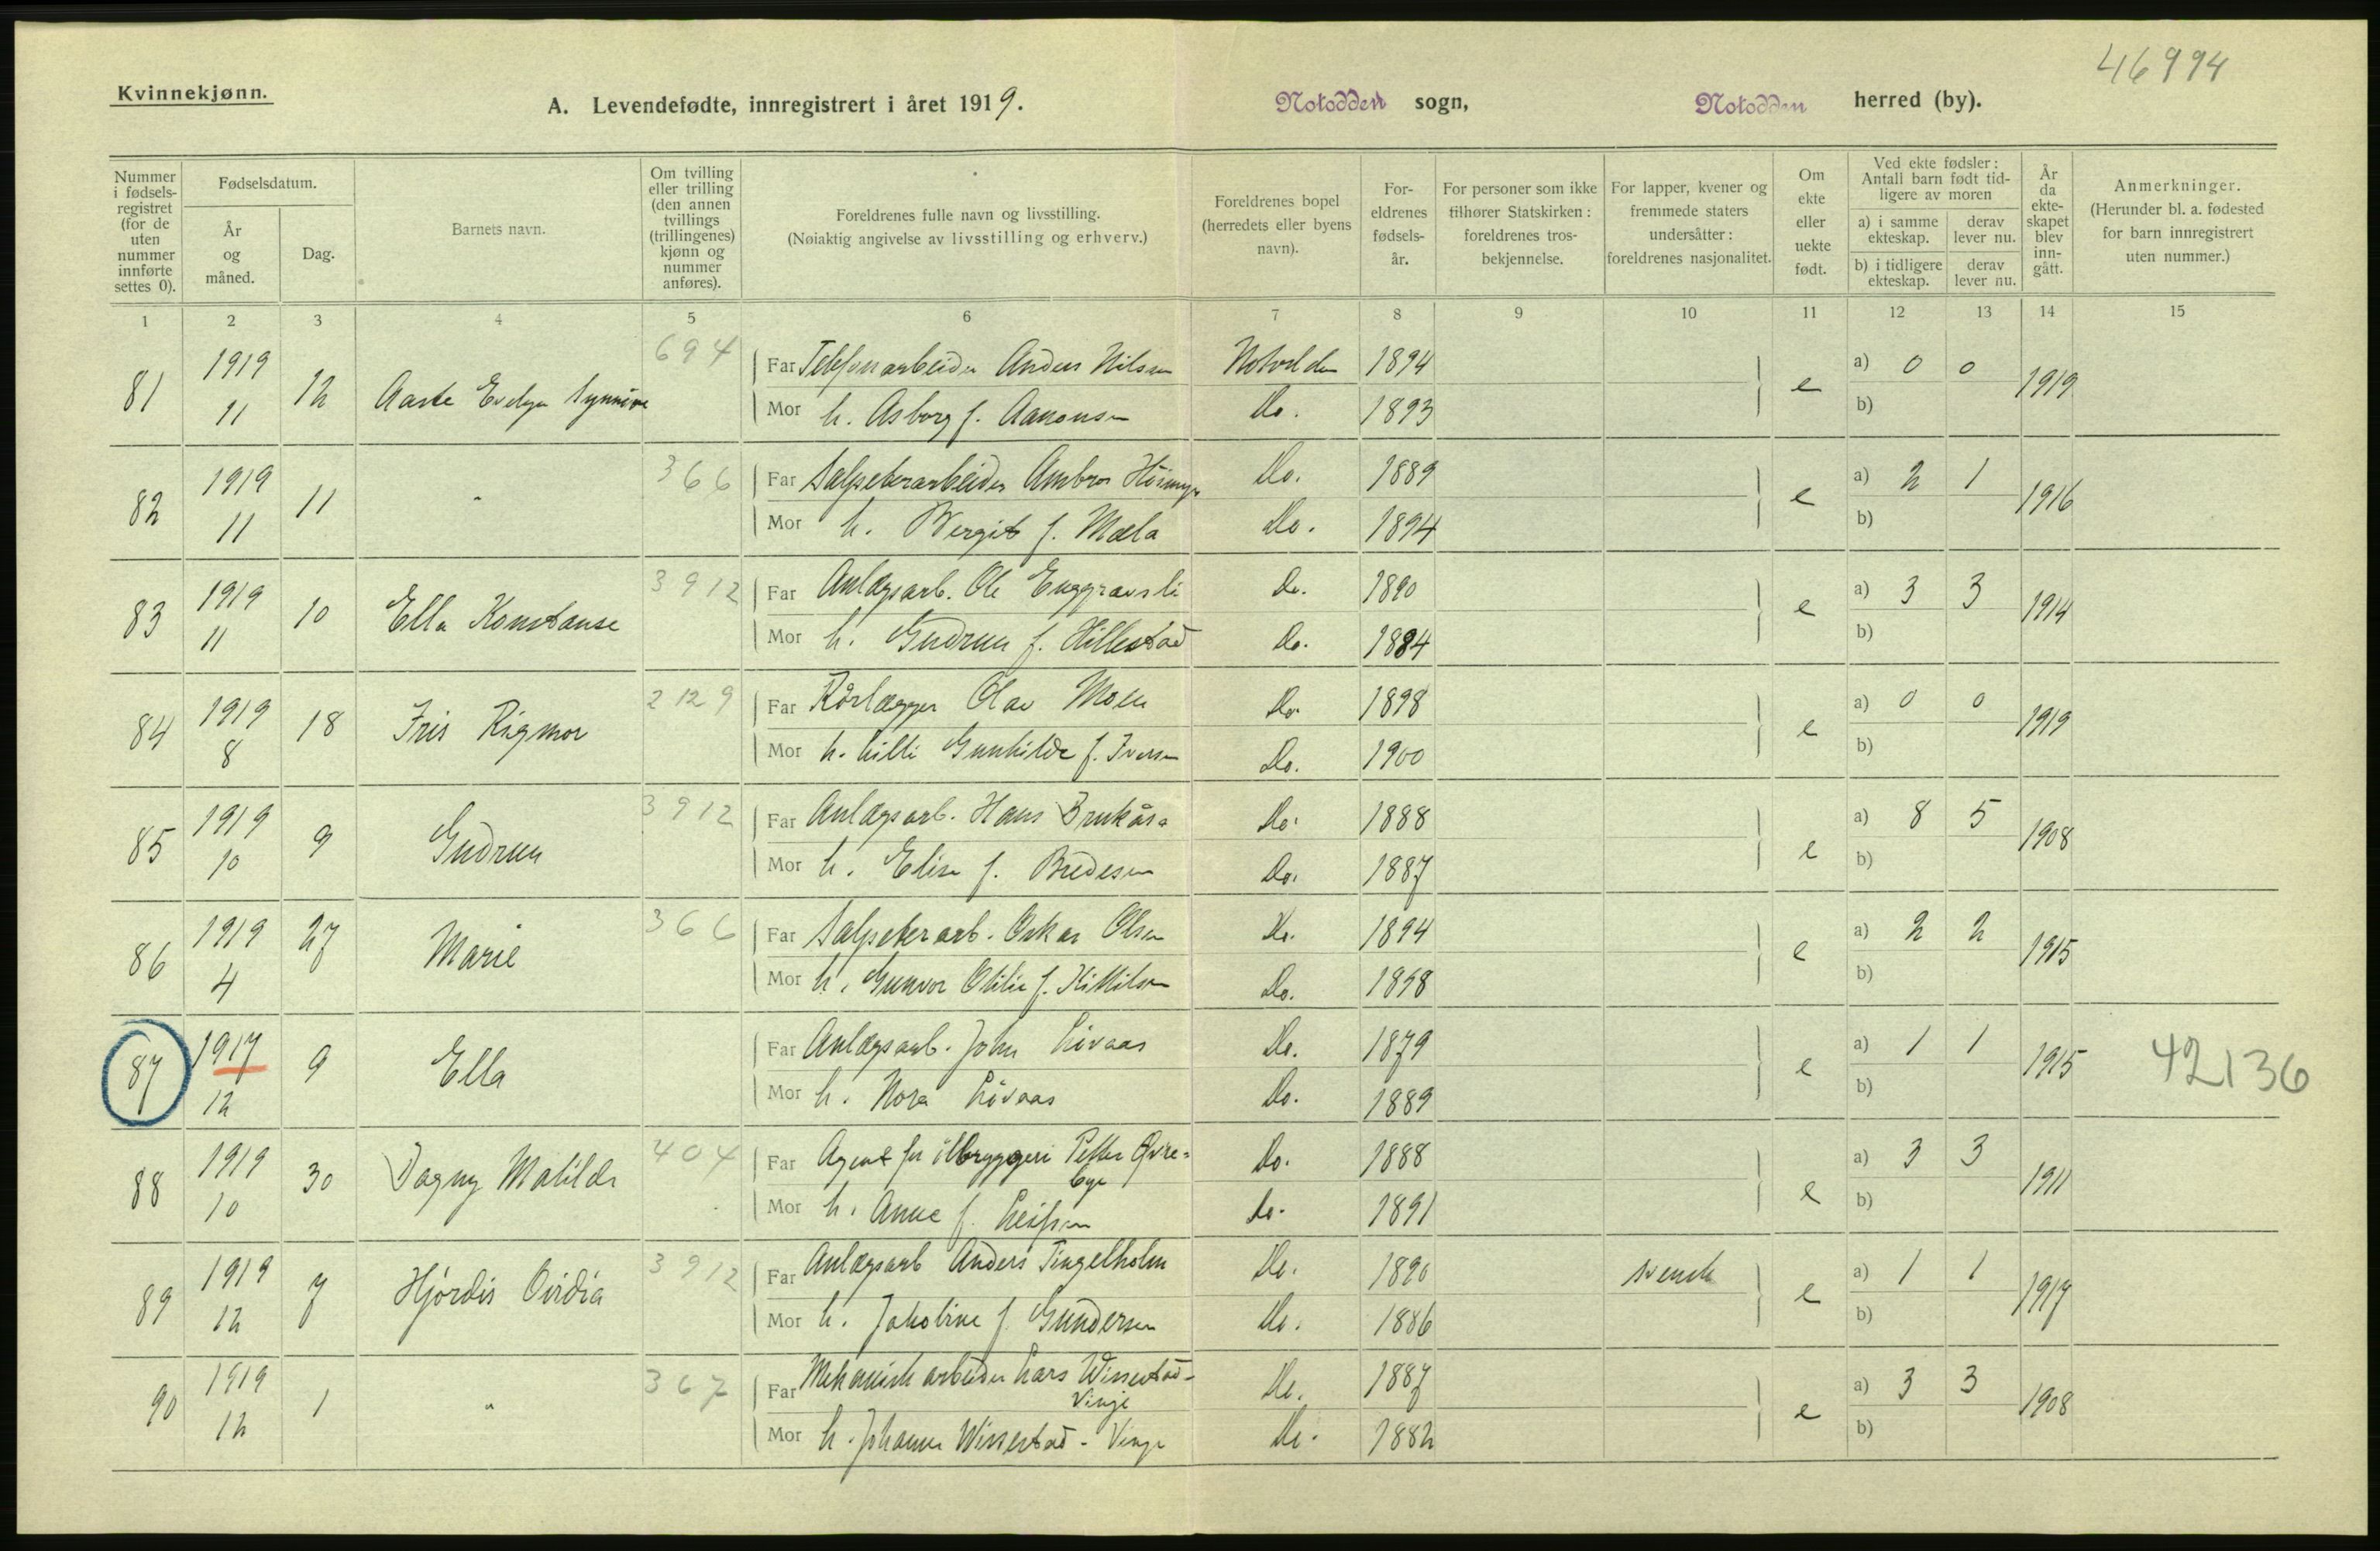 46994
Kvinnekjønn.
A. Levendefødte, innregistrert i året 1919. Notodden sogn, Notodden herred (by).
Nummer i fødsels-registret (for de uten nummer innførte settes 0).
Fødselsdatum.
År og måned.
Dag.
Barnets navn.
Om tvilling eller trilling (den annen tvillings (trillingenes) kjønn og nummer anføres).
Foreldrenes fulle navn og livsstilling.
(Nøiaktig angivelse av livsstilling og erhverv.)
Foreldrenes bopel (herredets eller byens navn).
For-eldrenes fødsels-år.
For personer som ikke tilhører Statskirken: foreldrenes tros-bekjennelse.
For lapper, kvener og fremmede staters undersåtter: foreldrenes nasjonalitet.
Om ekte eller uekte født.
Ved ekte fødsler: Antall barn født tid-ligere av moren
a) i samme ekteskap. derav lever nu.
b) i tidligere ekteskap. derav lever nu.
År da ekte-skapet blev inn-gått.
Anmerkninger.
(Herunder bl. a. fødested for barn innregistrert uten nummer.)
1 2 3 4 5 6 7 8 9 10 11 12 13 14 15
81 1919 11 12 Aaste Evelyn Synnøve 694
Far Telefonarbeider Anders Nilsen Notodden 1894 e a) 0 0 1919
Mor h. Asborg f. Aanonsen Do. 1893 b)
82 1919 11 11 " 366
Far Salpeterarbeider Ambros Do. 1889 e a) 2 1 1916
Mor h. Bergit f. Mæla Do. 1894 b)
83 1919 11 10 Ella Konstanse 3912
Far Anlægsarb. Ole Enggravsli Do. 1890 e a) 3 3 1914
Mor h. Gudrun f. Hillestad Do. 1884 b)
84 1919 8 18 Iris Rigmor 2129
Far Rørlægger Olav Moen Do. 1898 e a) 0 0 1919
Mor h. Lilli Gunhilde f. Iversen Do. 1900 b)
85 1919 10 9 Gudrun 3912
Far Anlægsarb. Hans Brukåsa Do. 1888 e a) 8 5 1908
Mor h. Elise f. Bredesen Do. 1887 b)
86 1919 4 27 Marie 366
Far Salpeterarb. Oskar Olsen Do. 1894 e a) 2 2 1915
Mor h. Gunvor Otilie f. Kittilsen Do. 1898 b)
87 1917 12 9 Ella
Far Anlægsarb. John Løvaas Do. 1879 e a) 1 1 1915 42136
Mor h. Nora Løvaas Do. 1889 b)
88 1919 10 30 Dagny Matilde 404
Far Agent for ølbryggeri Petter Øvre=
bye Do. 1888 e a) 3 3 1911
Mor h. Anne f. Leifsen Do. 1891 b)
89 1919 12 7 Hjördis Ovidia 3912
Far Anlægsarb Anders Tingelholm Do. 1890 svensk e a) 1 1 1917
Mor h. Jakobine f. Gundersen Do. 1886 b)
90 1919 12 1 " 367
Far Mekanisk arbeider Lars Wissestad-
Vinje Do. 1887 e a) 3 3 1908
Mor h. Johanne Wissestad - Vinje Do. 1882 b)